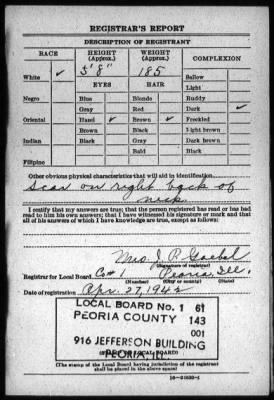 REGISTRAR'S REPORT
DESCRIPTION OF REGISTRANT
RACE HEIGHT (Approx.) WEIGHT (Approx.) COMPLEXION
White ✓ 5' 8" 185 Sallow
EYES HAIR Light
Negro Blue Blonde Ruddy
Gray Red Dark ✓
Oriental Hazel ✓ Brown ✓ Freckled
Brown Black Light brown
Indian Black Gray Dark brown
Bald Black
Filipino
Other obvious physical characteristics that will aid in identification
Scar on right back of
neck
I certify that my answers are true; that the person registered has read or has had
read to him his own answers; that I have witnessed his signature or mark and that
all of his answers of which I have knowledge are true, except as follows:
Mrs. J. P. Goebel
(Signature of registrar)
Registrar for Local Board 1 Peoria, Ill.
(Number) (City or county) (State)
Date of registration Apr. 27, 1942
LOCAL BOARD No. 1 61
PEORIA COUNTY 143
001
916 JEFFERSON BUILDING
PEORIA, ILL.
(The stamp of the Local Board having jurisdiction of the registrant
shall be placed in the above space)